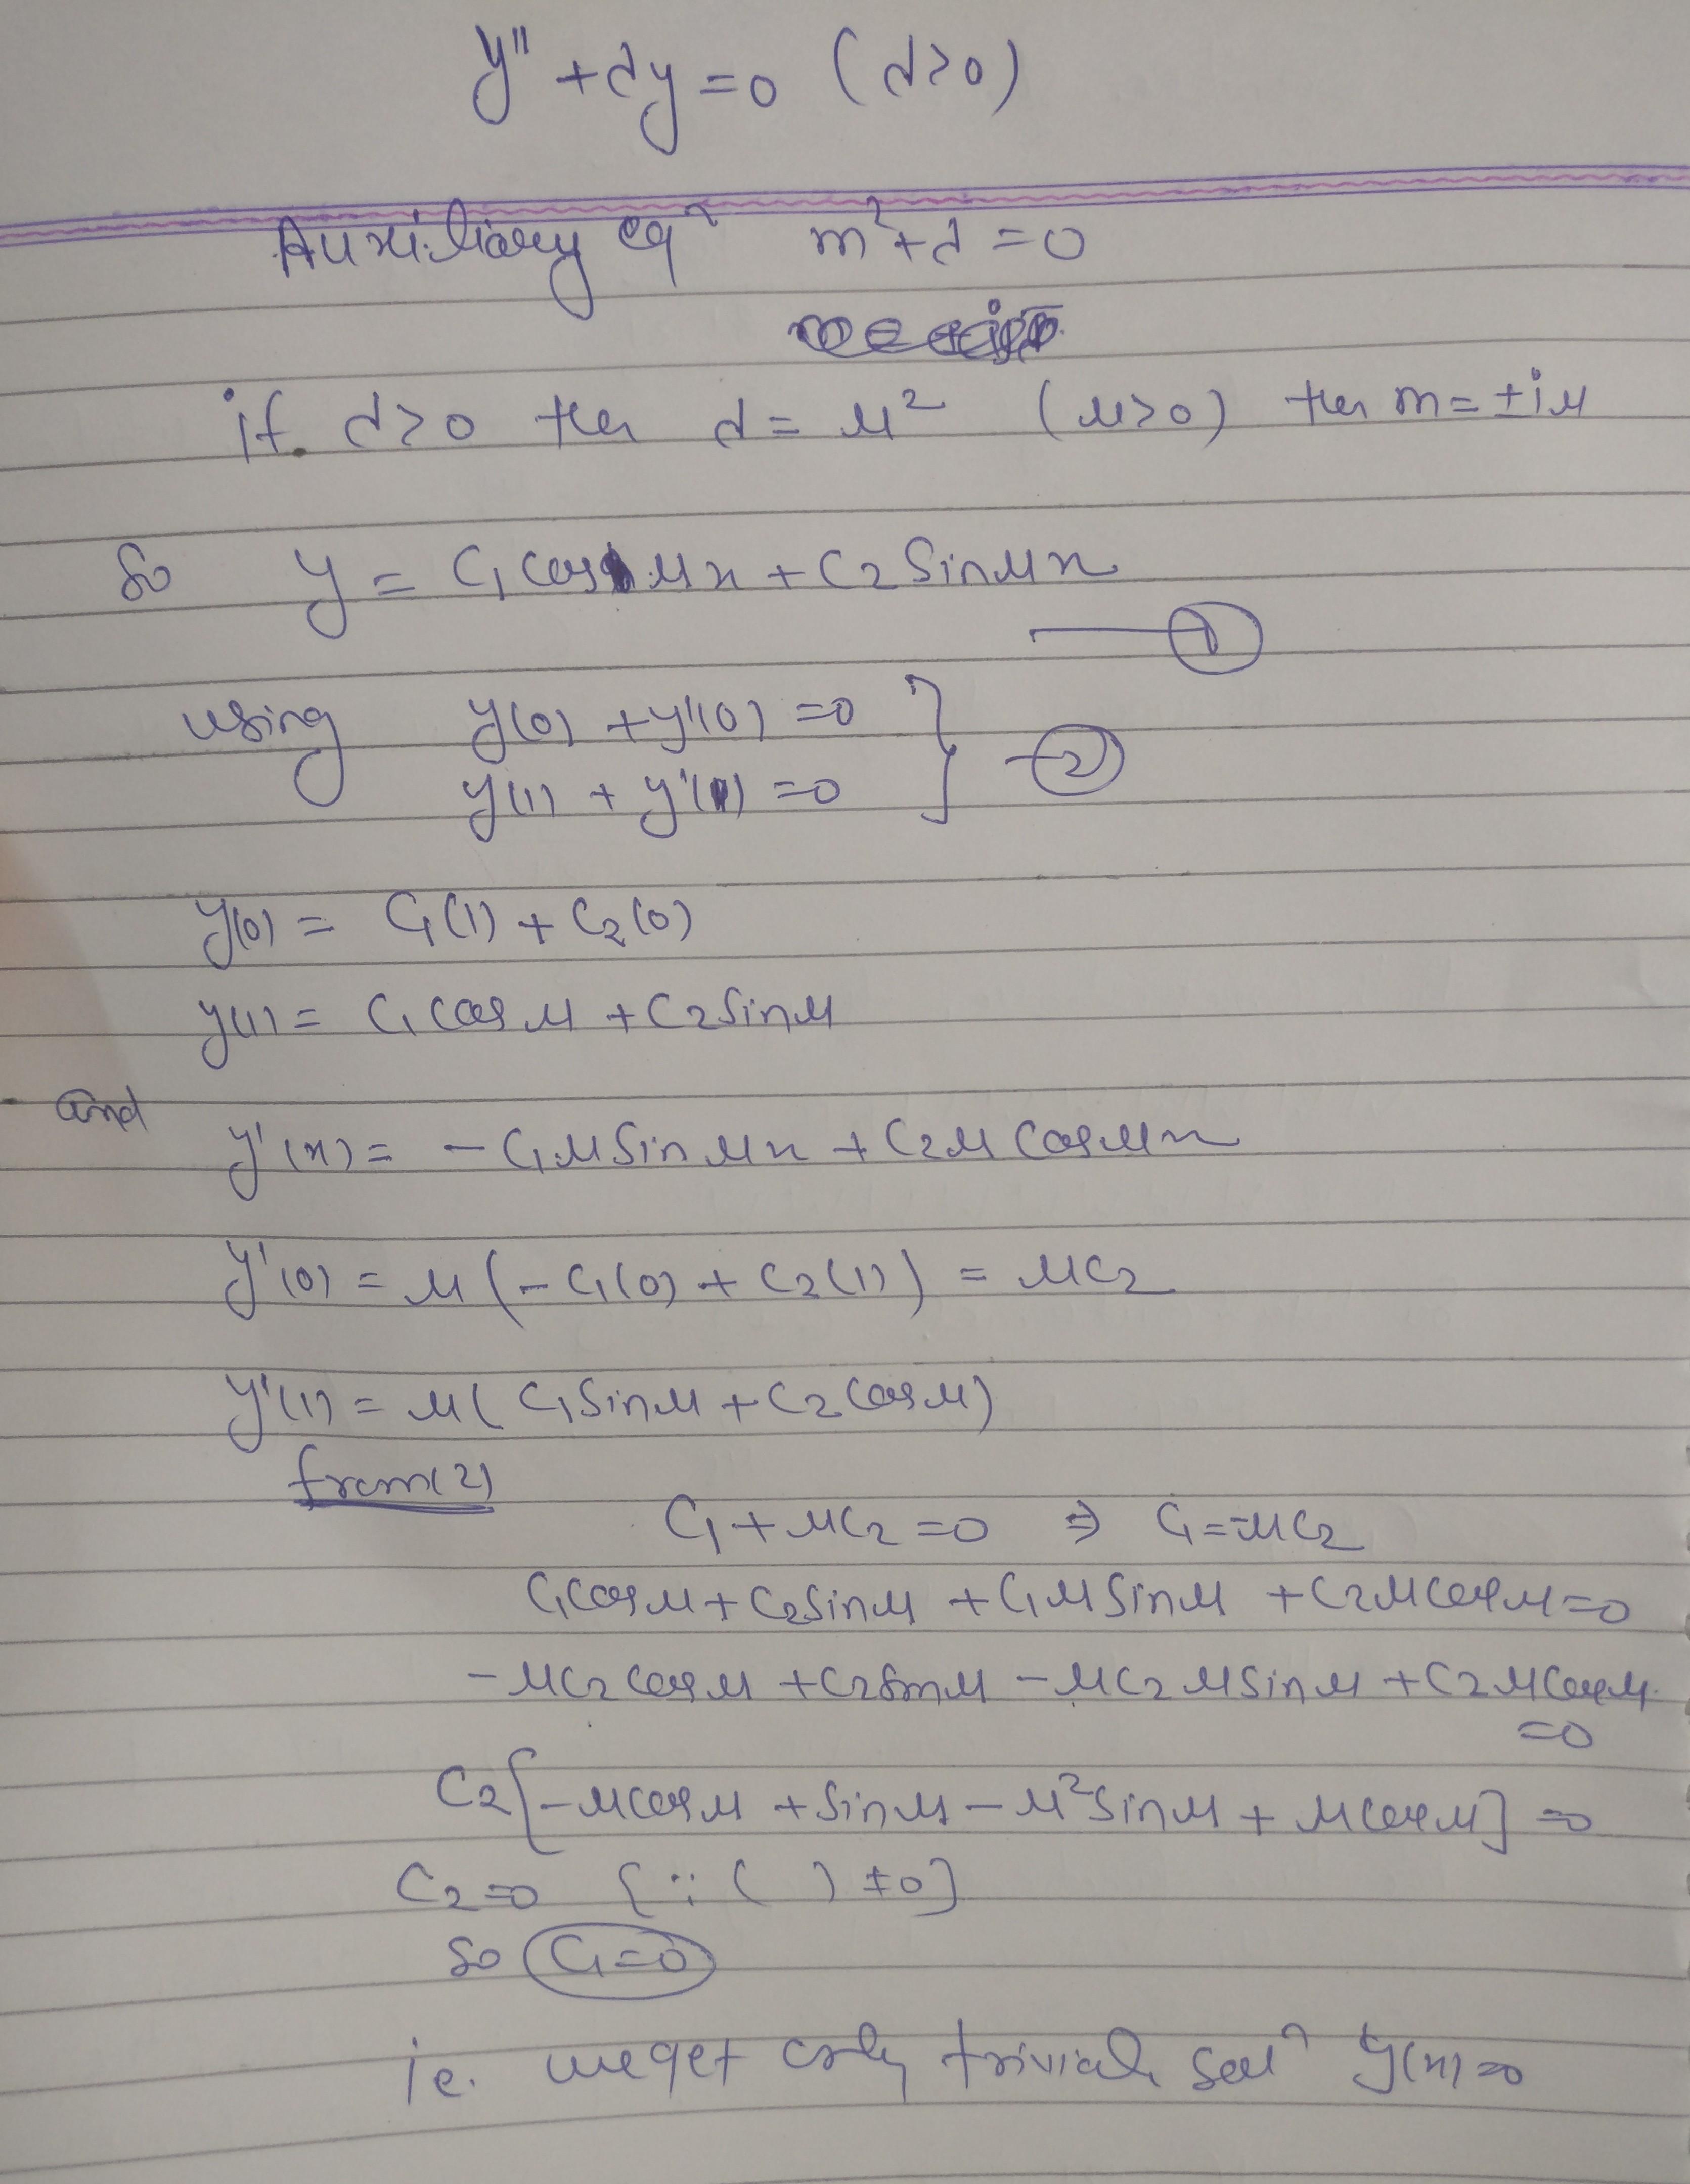 y'' + λy = 0 (λ>0)
Auxiliary eqn m² + λ = 0
if λ>0 then λ = μ² (μ>0) then m = ±iμ
So y = C₁ cos μx + C₂ Sin μx
—— ①
using y(0) + y'(0) = 0
y(1) + y'(1) = 0 } —②
y(0) = C₁(1) + C₂(0)
y(1) = C₁ cos μ + C₂ Sin μ
and
y'(x) = - C₁μ Sin μx + C₂μ Cos μx
y'(0) = μ(- C₁(0) + C₂(1)) = μC₂
y'(1) = μ( C₁ Sin μ + C₂ Cos μ)
from(2)
C₁ + μC₂ = 0 ⇒ C₁ = -μC₂
C₁ cos μ + C₂ Sin μ + C₁ μ Sin μ + C₂ μ cos μ = 0
- μC₂ cos μ + C₂ Sin μ - μC₂ μ Sin μ + C₂ μ Cos μ
= 0
C₂[-μ cos μ + Sin μ - μ² Sin μ + μ cos μ] = 0
C₂ = 0 {∵ ( ) ≠ 0}
So C₁ = 0
ie. we get only trivial soln y(x) = 0